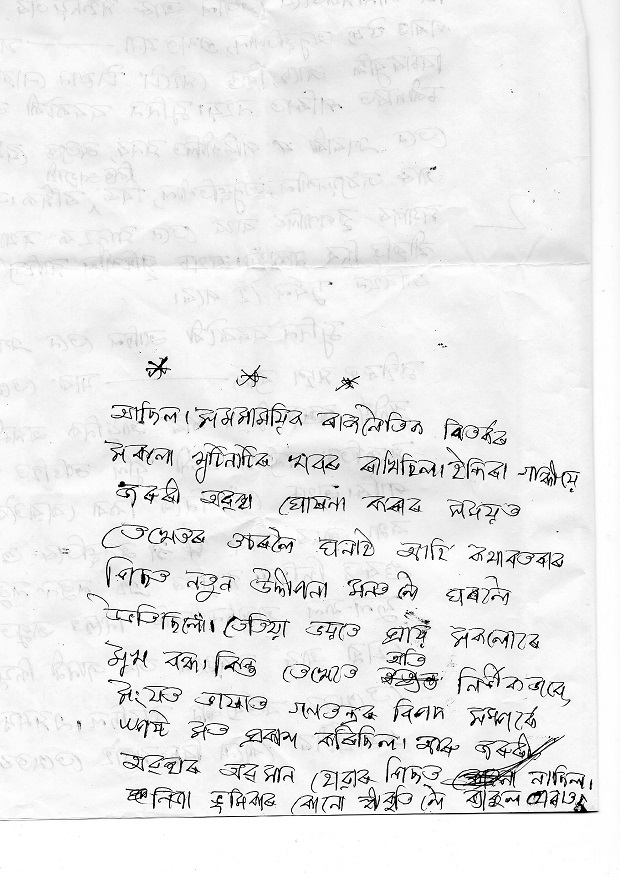 আছিল। সমসাময়িক ৰাজনৈতিক বিতৰ্কৰ
সকলো খুটিনাটিৰ খবৰ ৰাখিছিল। ইন্দিৰা গান্ধীয়ে
জৰুৰী অৱস্থা ঘোষনা কৰাৰ সময়ত
তেখেতৰ ওচৰলৈ ঘনাই আহি কথাবতৰাৰ
পিছত নতুন উদ্দীপনা মনত লৈ ঘৰলৈ
উভতিছিলো। তেতিয়া ভয়তে প্ৰায় সকলোৰে
মুখ বন্ধ। কিন্তু তেখেতে অতি নিৰ্ভীকভাবে,
সংযত ভাষাত গনতন্ত্ৰৰ বিপদ সম্পৰ্কে
মত প্ৰকাশ কৰিছিল। আৰু জৰুৰী
অৱস্থাৰ অৱসান হোৱাৰ পিছত নাছিল।
নিজা ভূমিকাৰ কোনো স্বীকৃতি লৈ ব্যাকুল